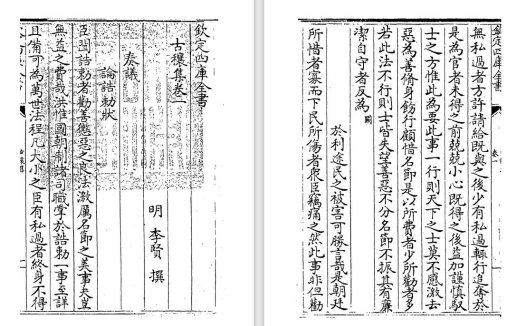 欽定四庫全書
古穰集卷一
明 李賢 撰
奏議
論誥勅狀
臣聞誥勅者勸善懲惡之良法激厲名節之美事夫豈
無益之費哉洪惟國朝制諸司職掌於誥勅一事至詳
且備可為萬世法程凡大小之臣有私過者終身不得
欽定四庫全書
無私過者方許請給既與之後少有私過輙行追奪於
是為官者未得之前兢兢小心既得之後益加謹慎馭
士之方惟此為要此事一行則天下之士莫不應激去
惡為善脩身飭行顧惜名節是以所費者少所勸者多
若此法不行則士皆失望善惡不分名節不振其有廉
潔自守者反為 闕
於利途民之被害可勝言哉是朝廷
所惜者寡而下民所傷者衆臣竊痛之然此事非但勸